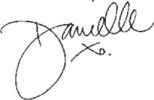 Danielle
xo.